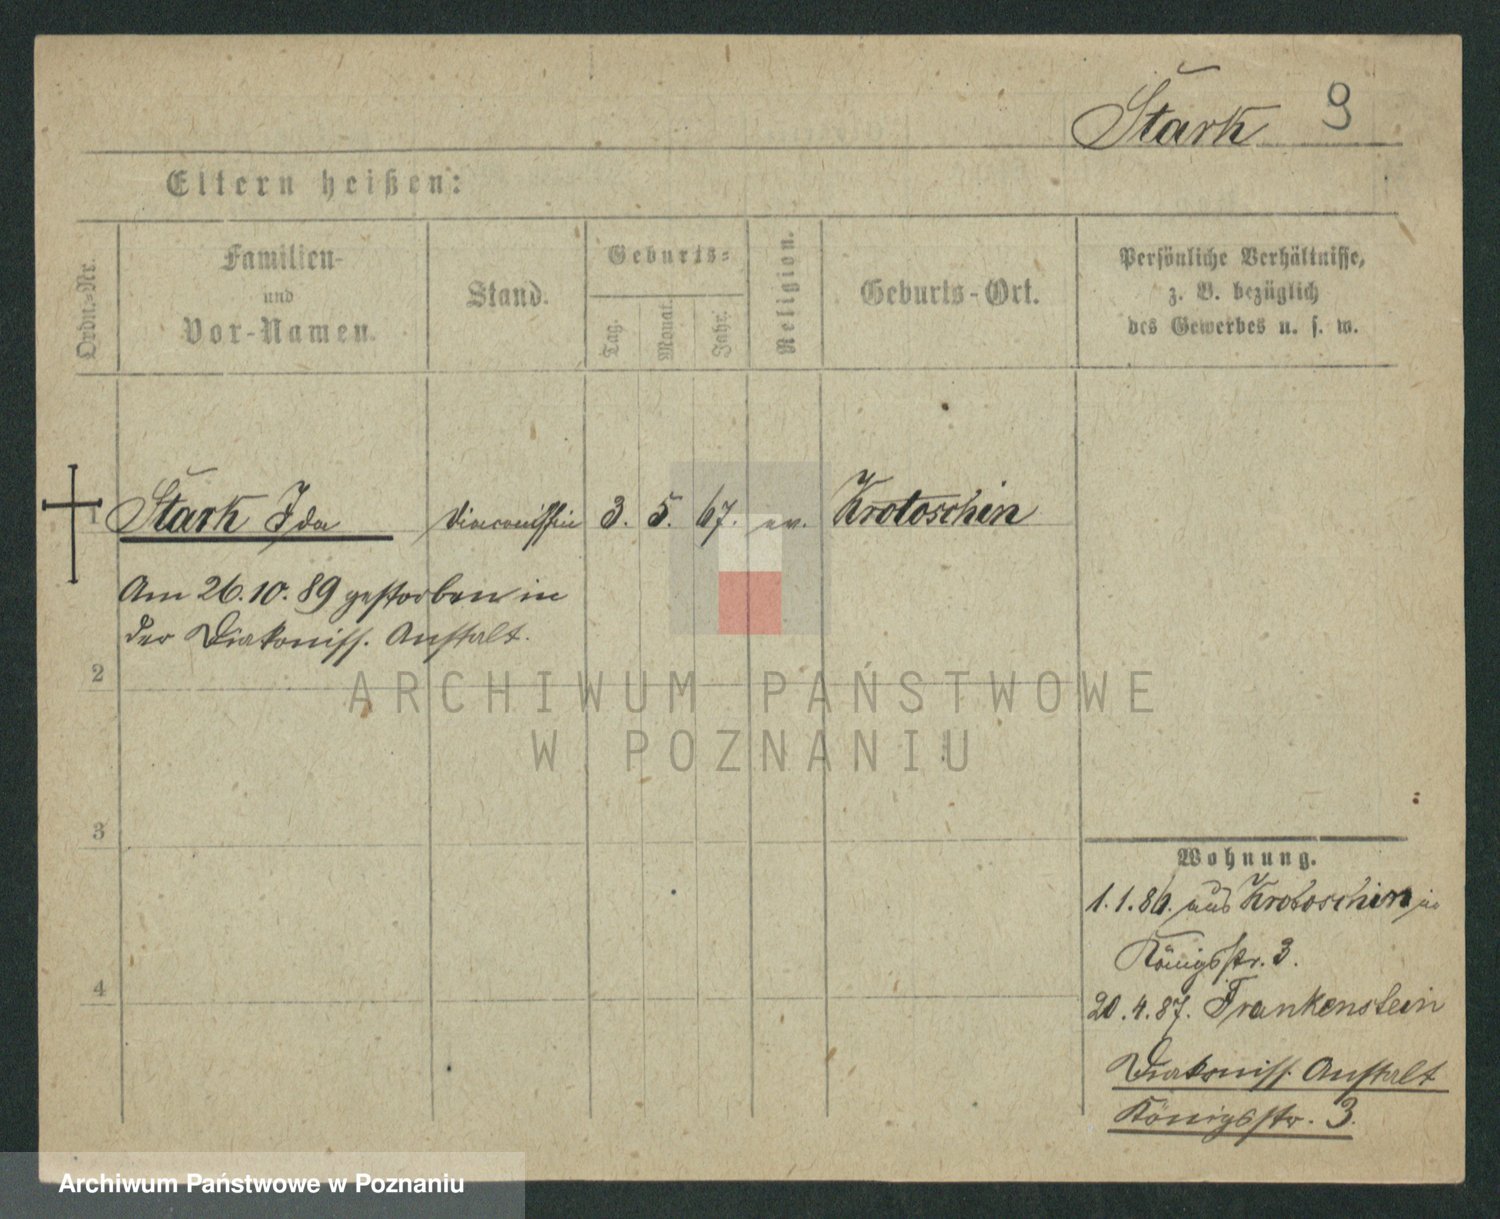 Stark 9
Eltern heißen:
Ordn.-Nr.
Familien-
und
Vor-Namen.
Stand.
Geburts-
Tag.
Monat.
Jahr.
Religion.
Geburts-Ort.
Persönliche Verhältnisse,
z. B. bezüglich
des Gewerbes u. s. w.
1 Stark Ida Diaconissin 3. 5. 67. ev. Krotoschin
Am 26.10.89 gestorben in
der Diakoniss. Anstalt.
2
3
4
Wohnung.
1.1.86. aus Krotoschin in
Königsstr. 3.
20.4.87. Frankenstein
Diakoniss. Anstalt
Königsstr. 3.
ARCHIWUM PAŃSTWOWE
W POZNANIU
Archiwum Państwowe w Poznaniu